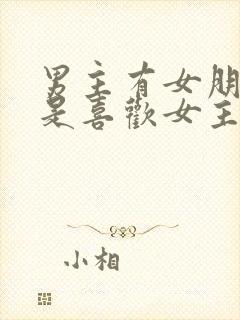 男主有女朋
是喜歡女主
小相